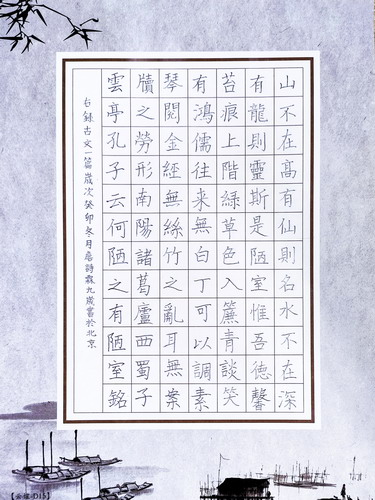 山不在高有仙則名水不在深
有龍則靈斯是陋室惟吾徳馨
苔痕上階綠草色入簾青談笑
有鴻儒往来無白丁可以調素
琴閱金經無絲竹之亂耳無案
牘之勞形南陽諸葛廬西蜀子
雲亭孔子云何陋之有陋室銘
右錄古文一篇歲次癸卯冬月詩霖九歲書於北京